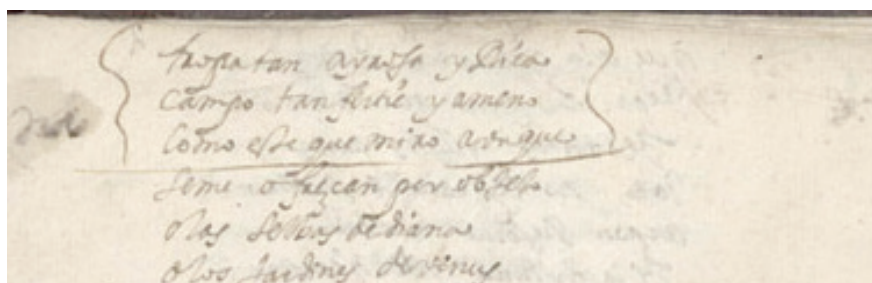 tropa tan ayrosa y
campo tan fertil y ameno
como este que miro aunque
seme ofrezcan por objeto
o las selvas de diana
o los jardines de venus